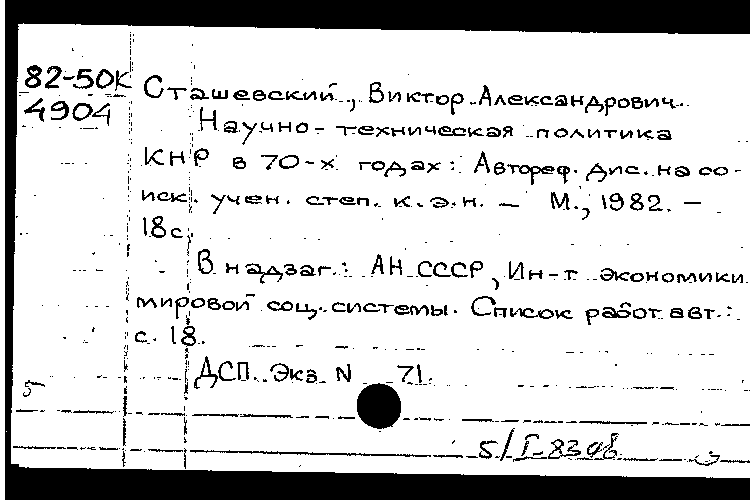 82-50К
4904
Сташевский, Виктор Александрович.
Научно-техническая политика
КНР в 70-х годах: Автореф. дис. на со-
иск. учен. степ. к.э.н. — М., 1982. —
18с.
В надзаг.: АН СССР, Ин-т экономики
мировой соц. системы. Список работ авт.:
с. 18.
ДСП. Экз. N 71.
5